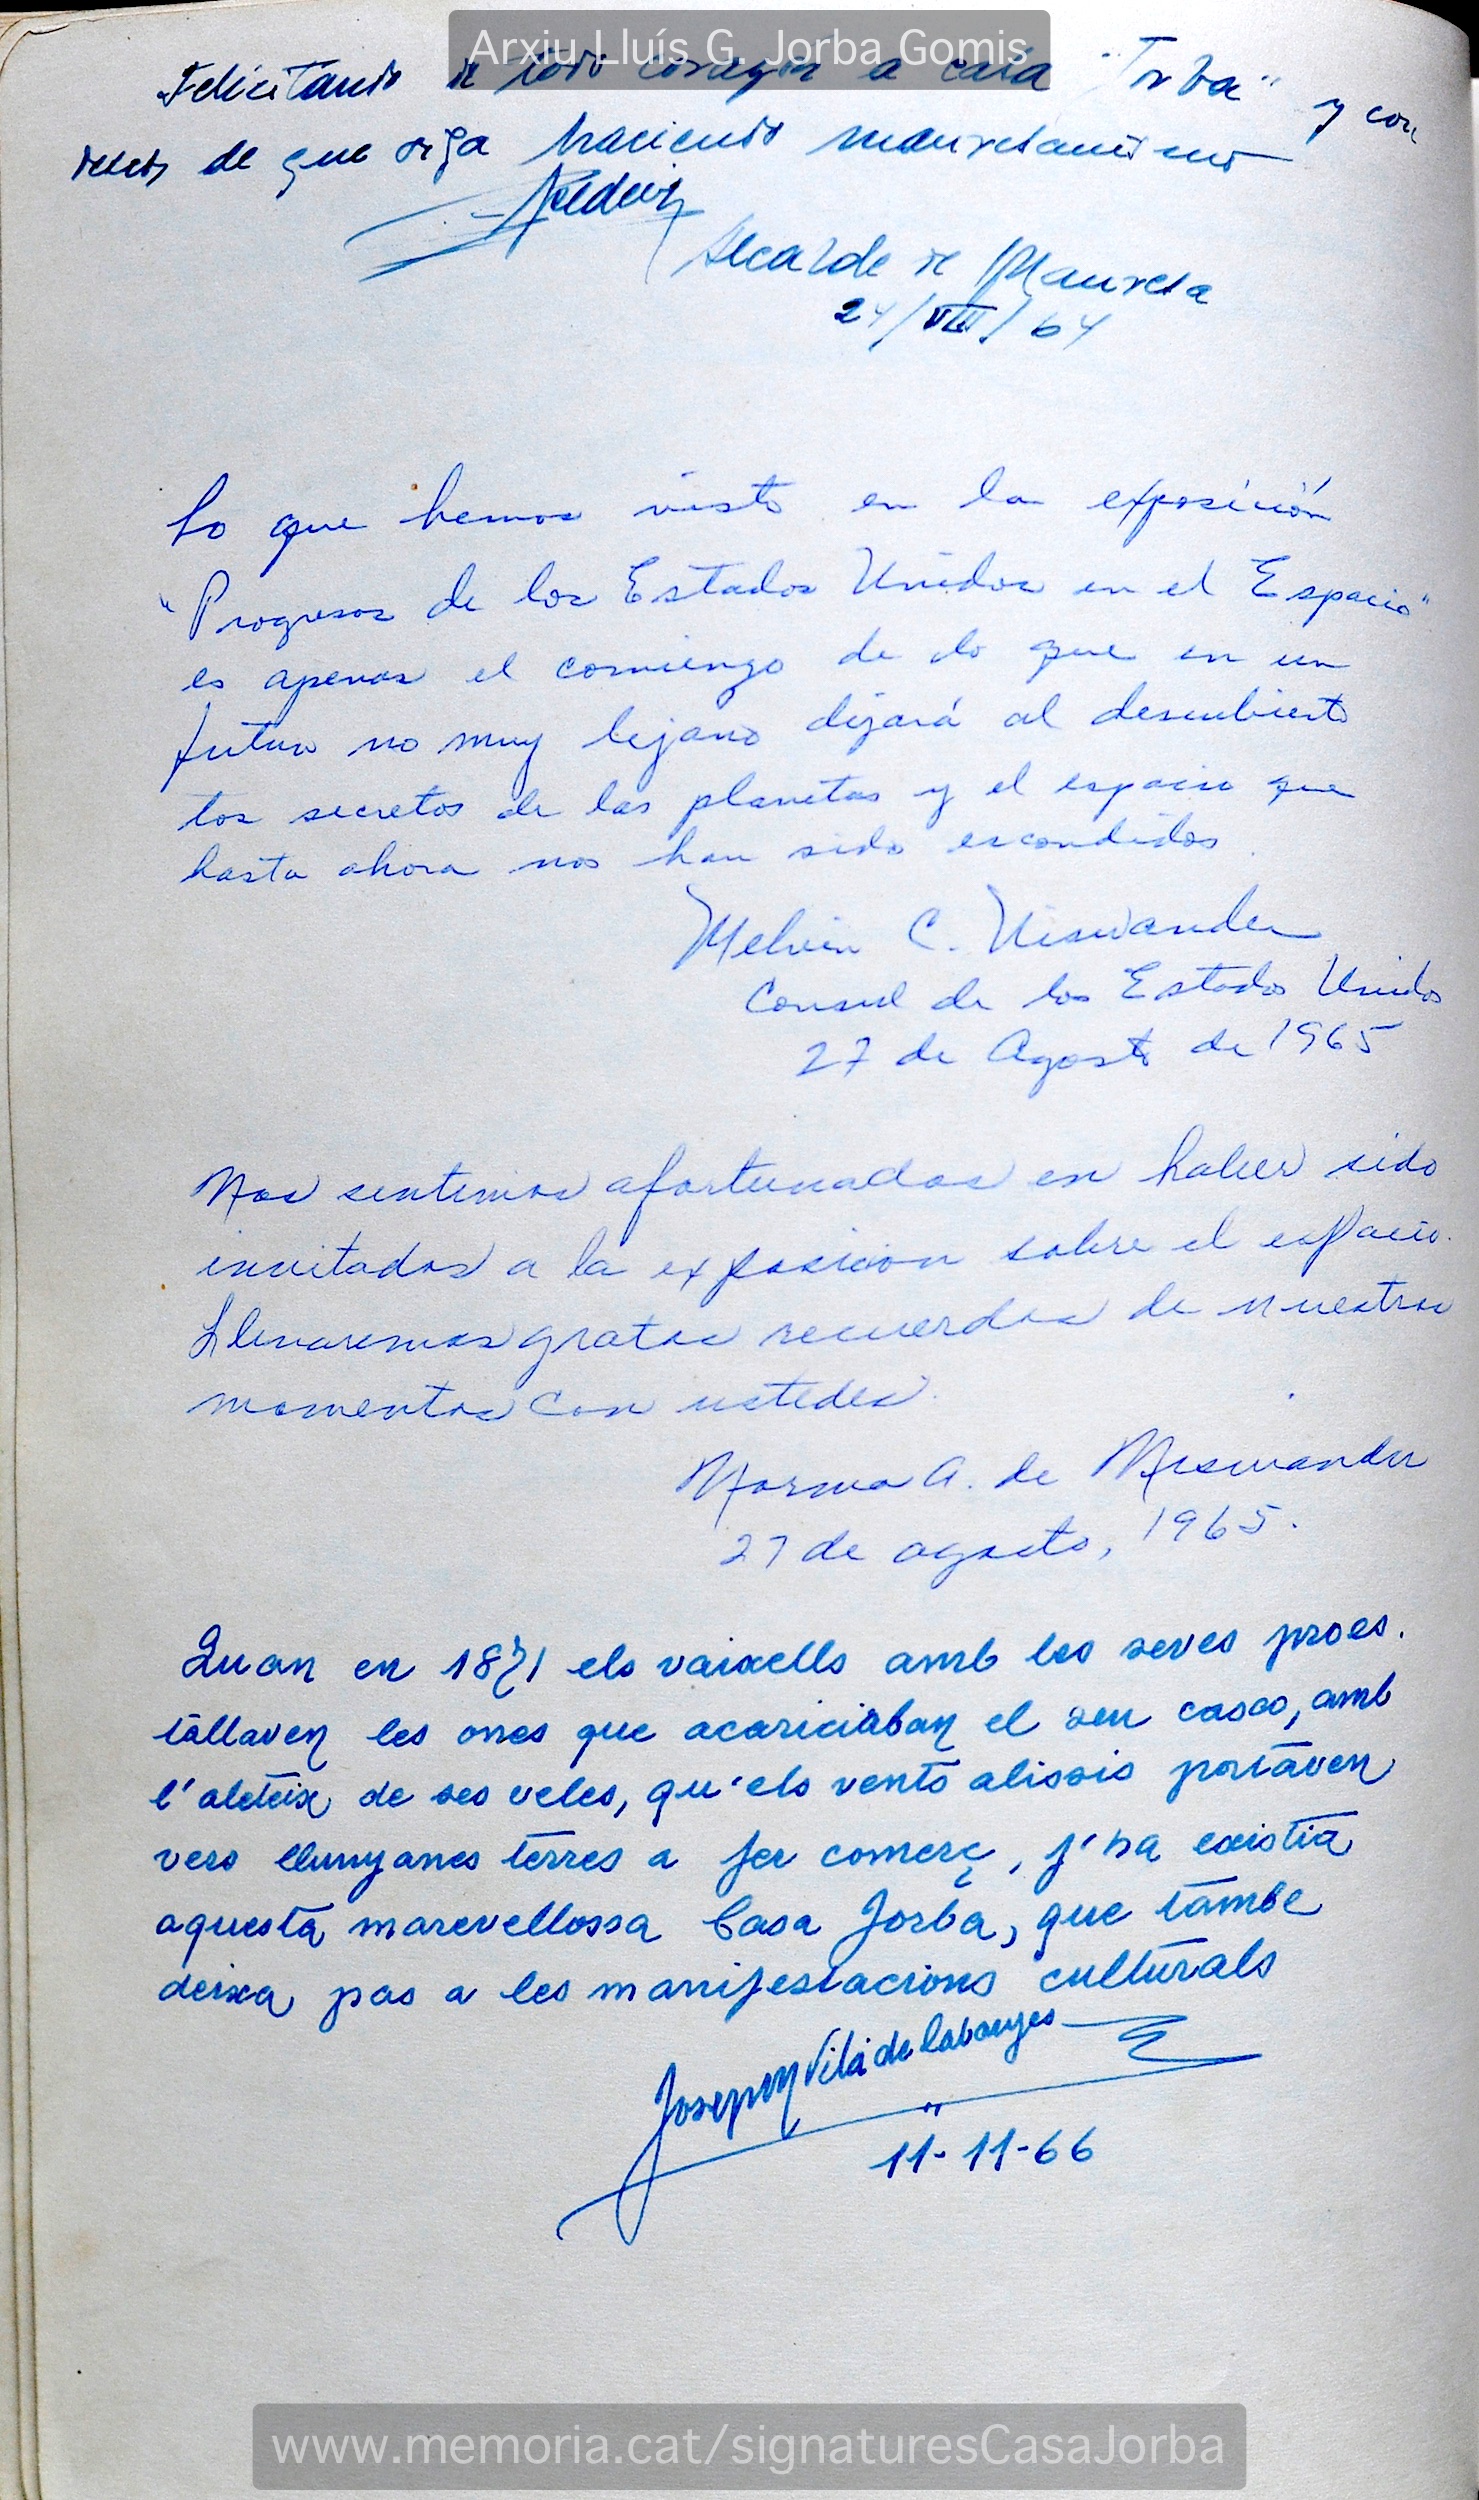 Arxiu Lluís G. Jorba Gomis
Felicitando de todo corazón a casa "Jorba" y con
deseos de que siga haciendo manresanismo
Alcalde de Manresa
24/VIII/64
Lo que hemos visto en la exposición
"Progresos de los Estados Unidos en el Espacio"
es apenas el comienzo de lo que en un
futuro no muy lejano dejará al descubierto
los secretos de los planetas y el espacio que
hasta ahora nos han sido escondidos.
Melvin C. Niswander
Consul de los Estados Unidos
27 de Agosto de 1965
Nos sentimos afortunados en haber sido
invitados a la exposicion sobre el espacio.
Llevaremos gratos recuerdos de nuestros
momentos con ustedes.
Norma A. de Niswander
27 de agosto, 1965.
Quan en 1871 els vaixells amb les seves proes.
tallaven les ones que acariciaban el seu casco, amb
l'aleteix de ses veles, qu'els vents alissis portaven
vers llunyanes terres a fer comerç, j'ha existia
aquesta marevellossa Casa Jorba, que tambe
deixa pas a les manifestacions culturals
Josep M Vilá de Cabanyes
11-11-66
www.memoria.cat/signaturesCasaJorba